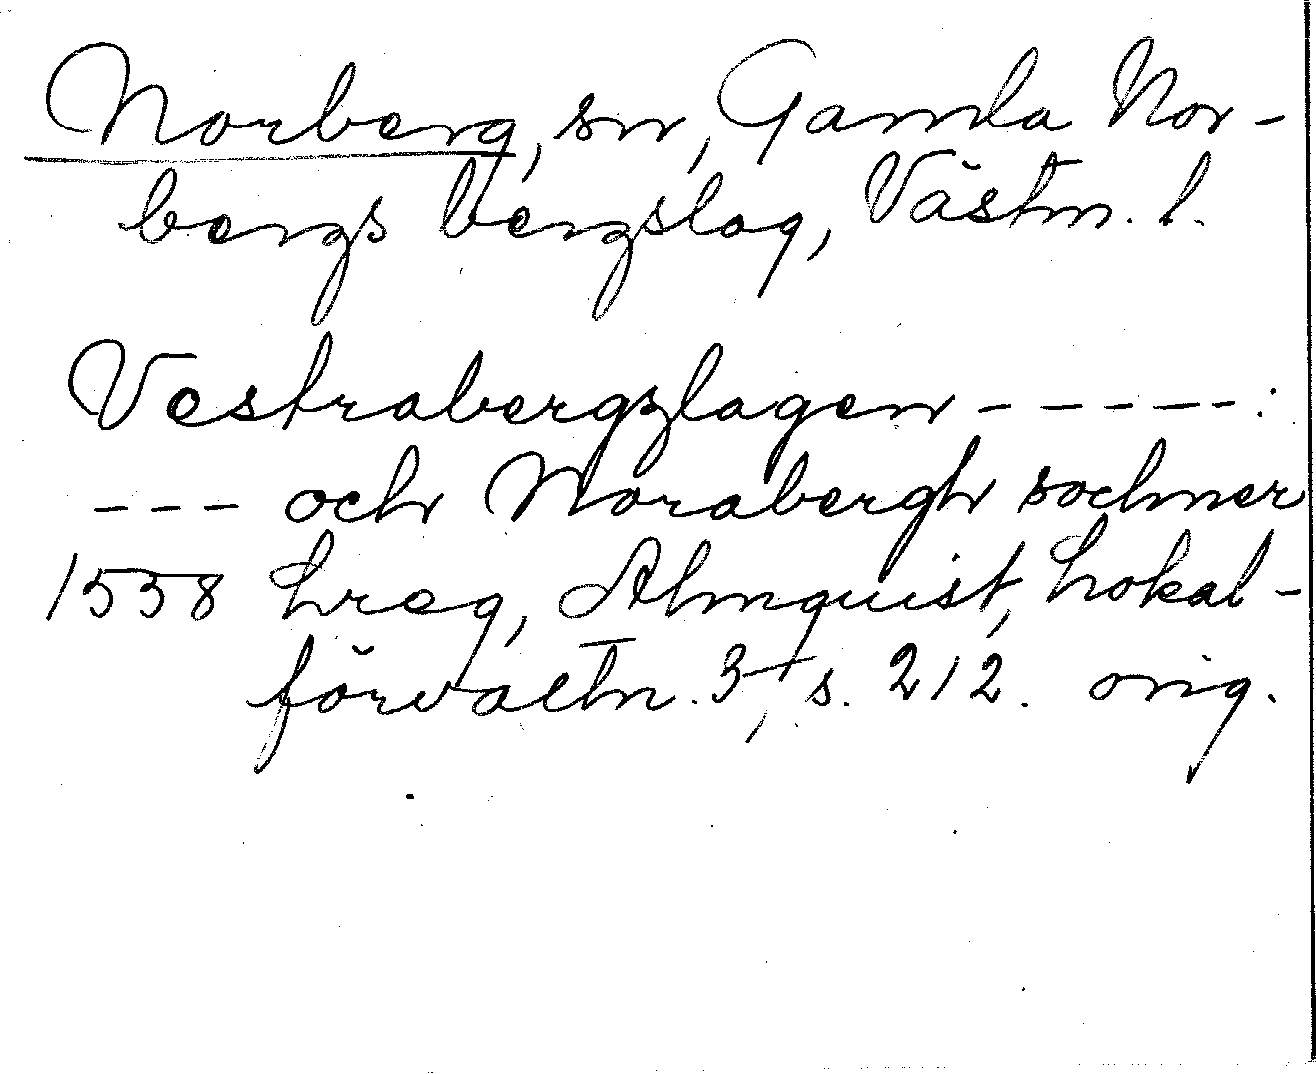 Norberg, sn, Gamla Nor-
bergs bergslag, Västm. l.
Vestrabergzlagen - - - - - :
- - - och Norabergh sochner
1538 Lreg, Almquist, Lokal-
förvaltn. 3, s. 212. orig.